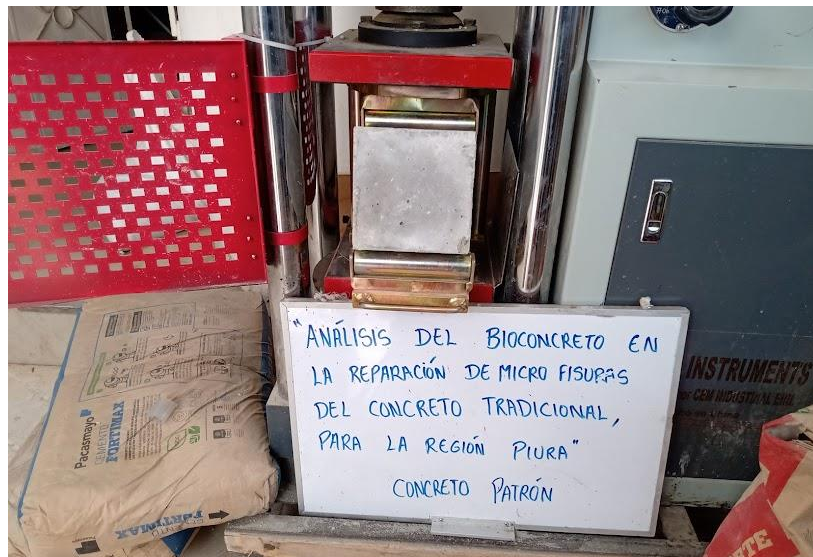 "ANÁLISIS DEL BIOCONCRETO EN
LA REPARACIÓN DE MICRO FISURAS
DEL CONCRETO TRADICIONAL,
PARA LA REGIÓN PIURA"
CONCRETO PATRÓN
Pacasmayo
CEMENTO
FORTIMAX
FORTIMAX
INSTRUMENTS